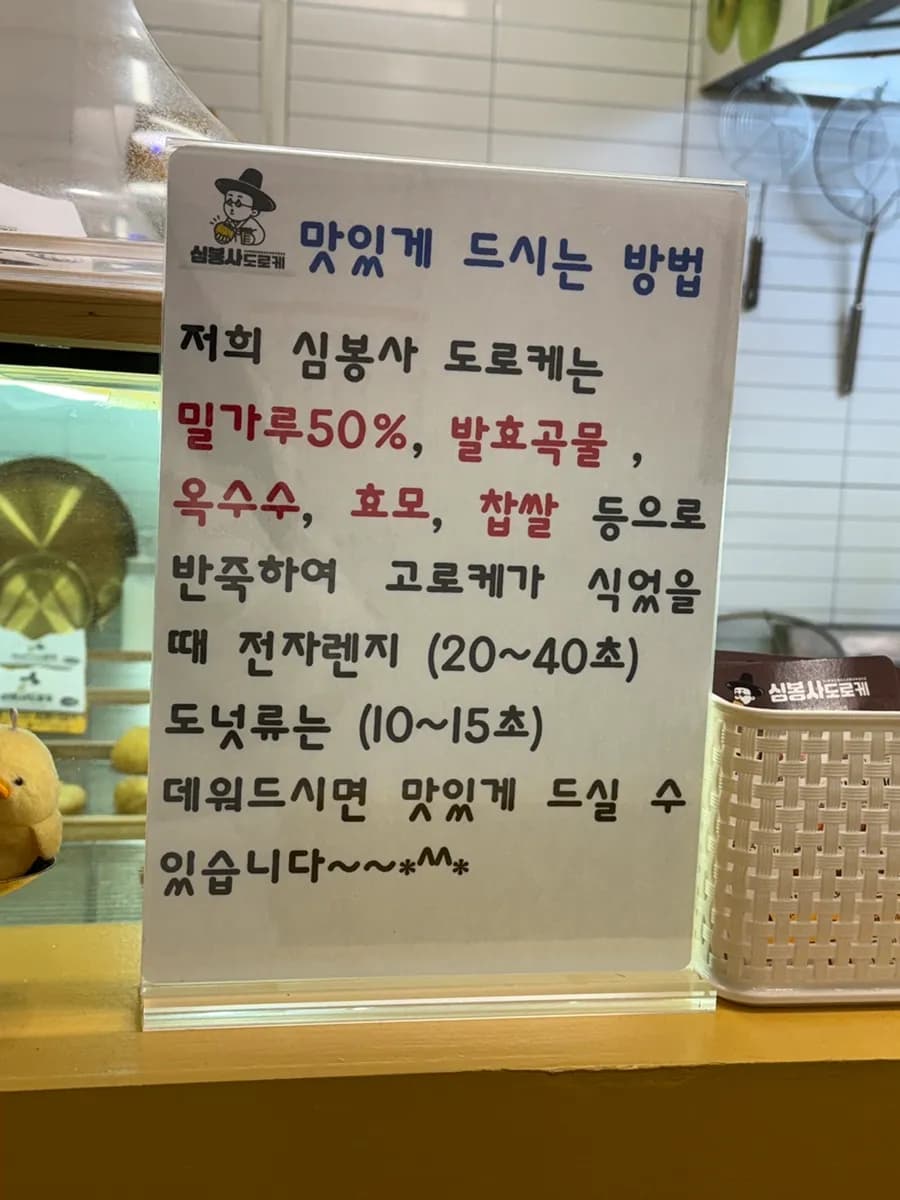 심봉사도로케
맛있게 드시는 방법
저희 심봉사 도로케는
밀가루50%, 발효곡물 ,
옥수수, 효모, 찹쌀 등으로
반죽하여 고로케가 식었을
때 전자렌지 (20~40초)
도넛류는 (10~15초)
데워드시면 맛있게 드실 수
있습니다~~*^^*
심봉사도로케